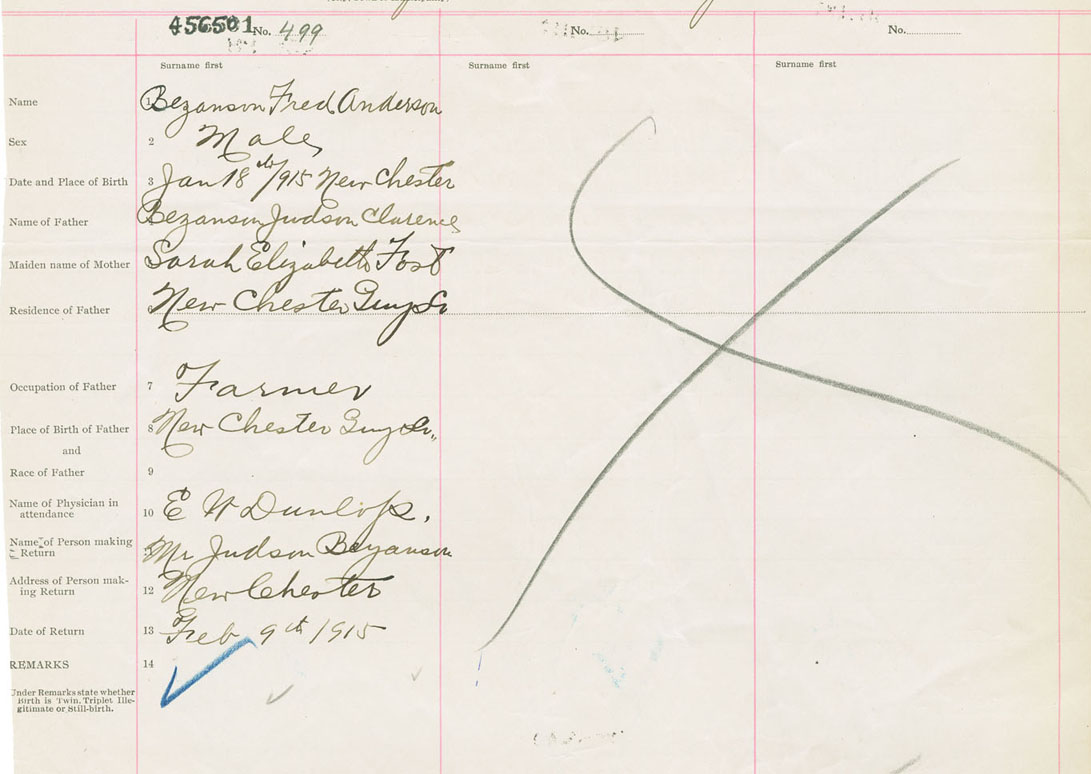 456501 No. 499 No. No.
Surname first Surname first Surname first
Name 1 Bezanson Fred Anderson
Sex 2 Male
Date and Place of Birth 3 Jan 18th/1915 New Chester
Name of Father Bezanson Judson Clarence
Maiden name of Mother Sarah Elizabeth Fost
Residence of Father New Chester Guys Co
Occupation of Father 7 Farmer
Place of Birth of Father 8 New Chester Guys Co.,
and
Race of Father 9
Name of Physician in
attendance 10 E W Dunlop.
Name of Person making
Return Mr Judson Bezanson
Address of Person mak-
ing Return 12 New Chester
Date of Return 13 Feb 9th/1915
REMARKS 14
Under Remarks state whether
Birth is Twin, Triplet Ille-
gitimate or Still-birth.